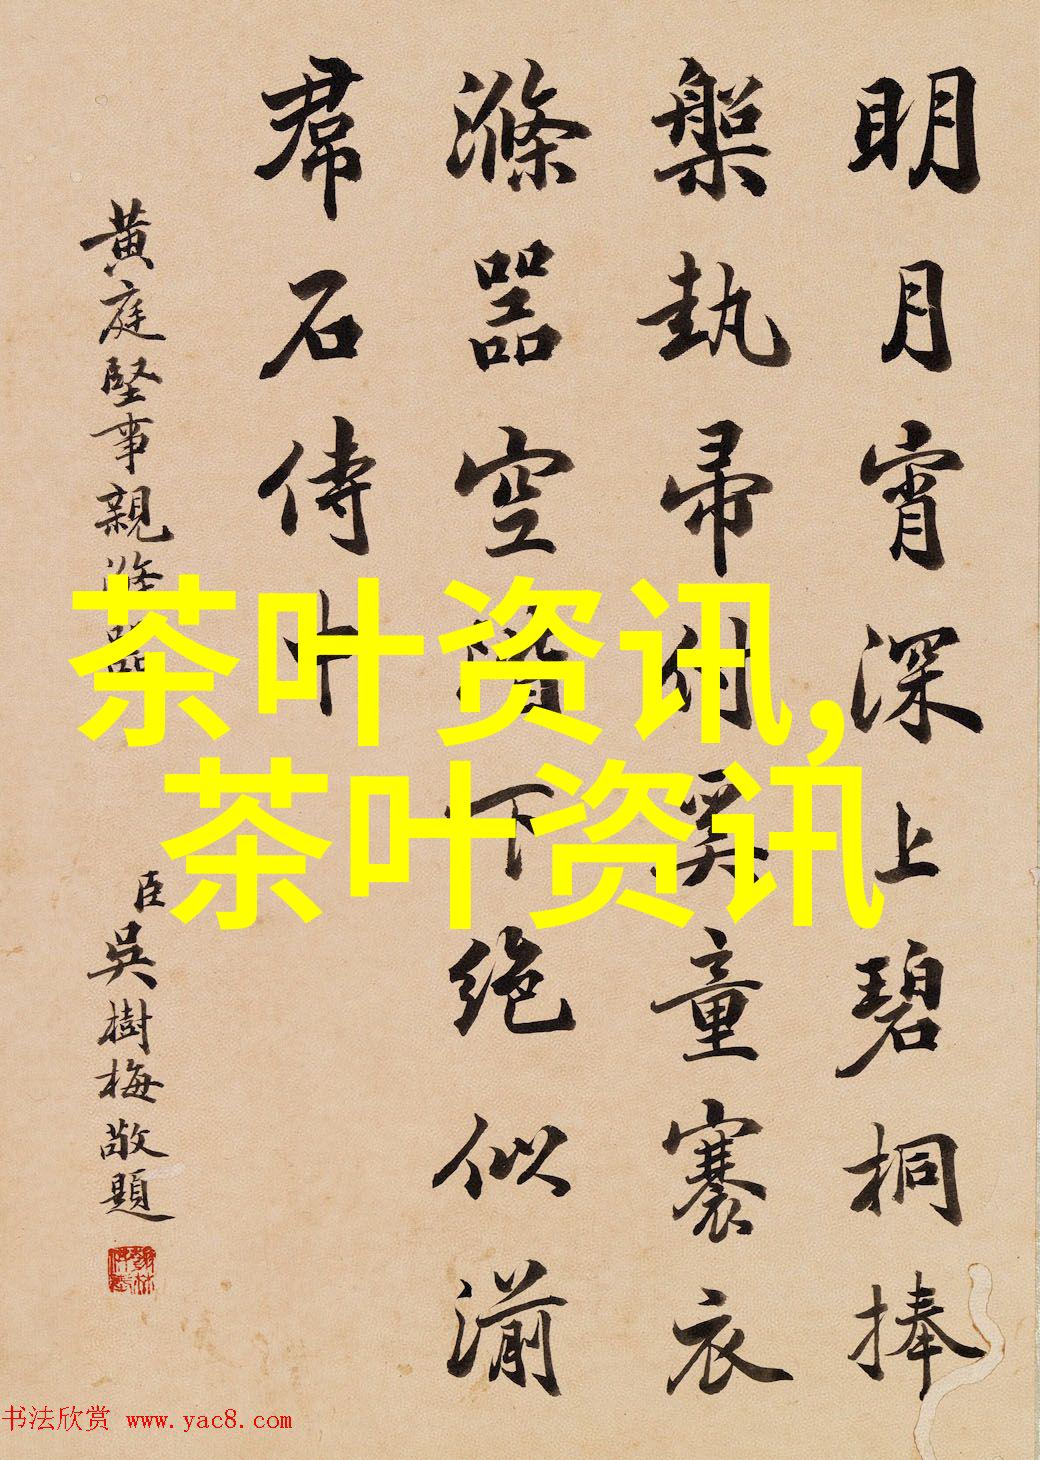 明月宵深上碧桐捧
槃執帚付奚童褰衣
滌器空階下絶似湔
帬石侍
黄庭堅事親滌器
臣吳樹梅敬題
茶叶资讯,
茶叶资讯
书法欣赏 www.yac8.com